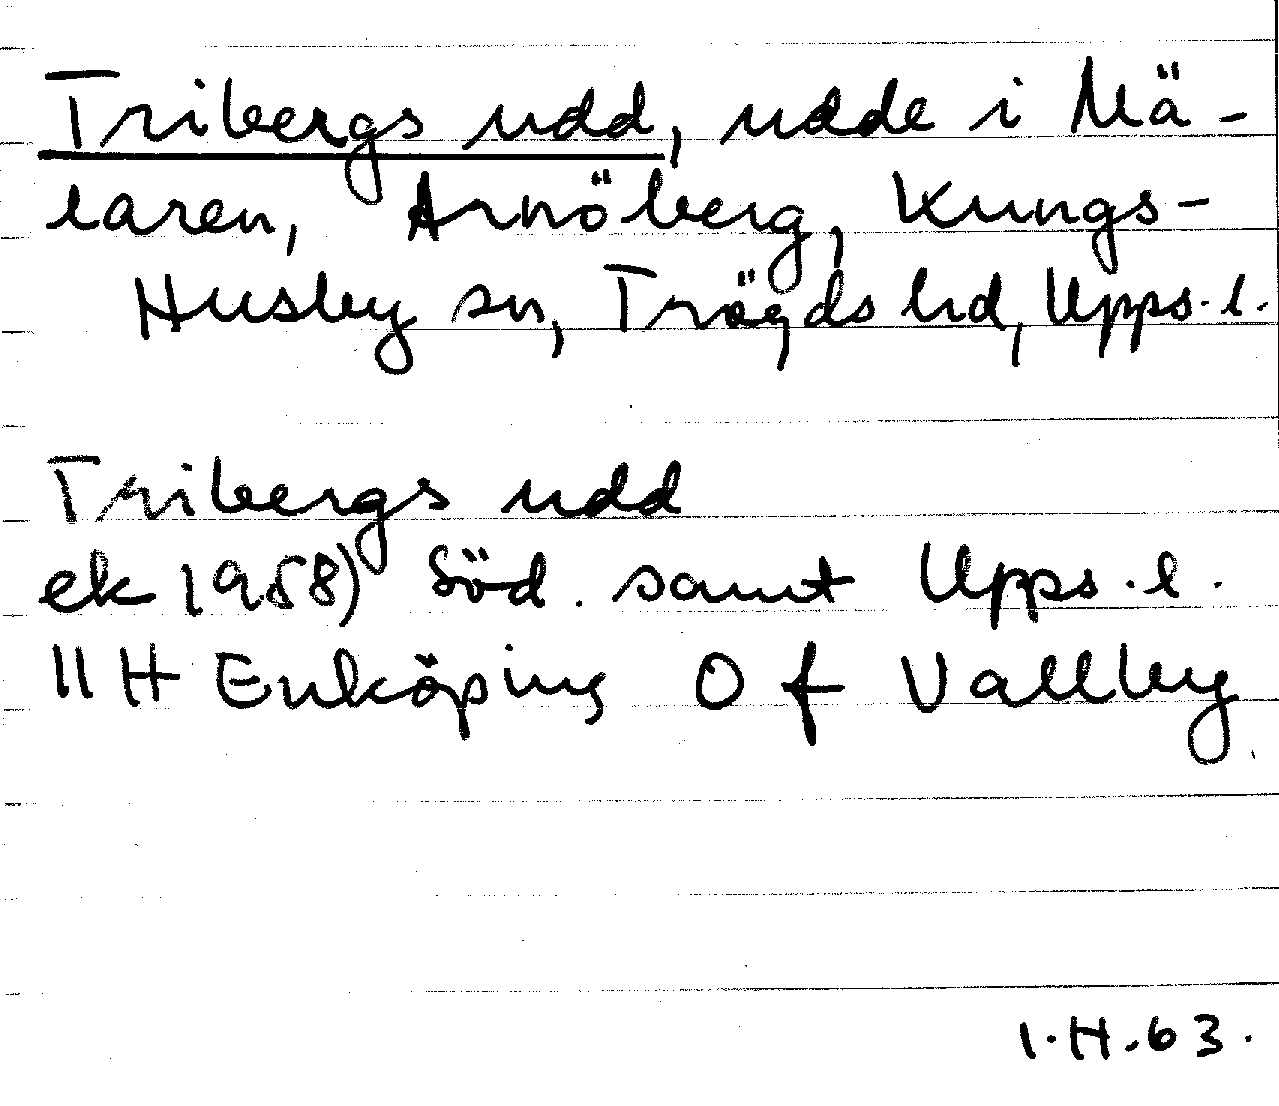 Tribergs udd, udde i Mä-
laren, Arnöberg, Kungs-
Husby sn, Trögds hd, Upps. l.
Tribergs udd
ek 1958) Söd. samt Upps. l.
11 H Enköping O f Vallby
I.H.63.